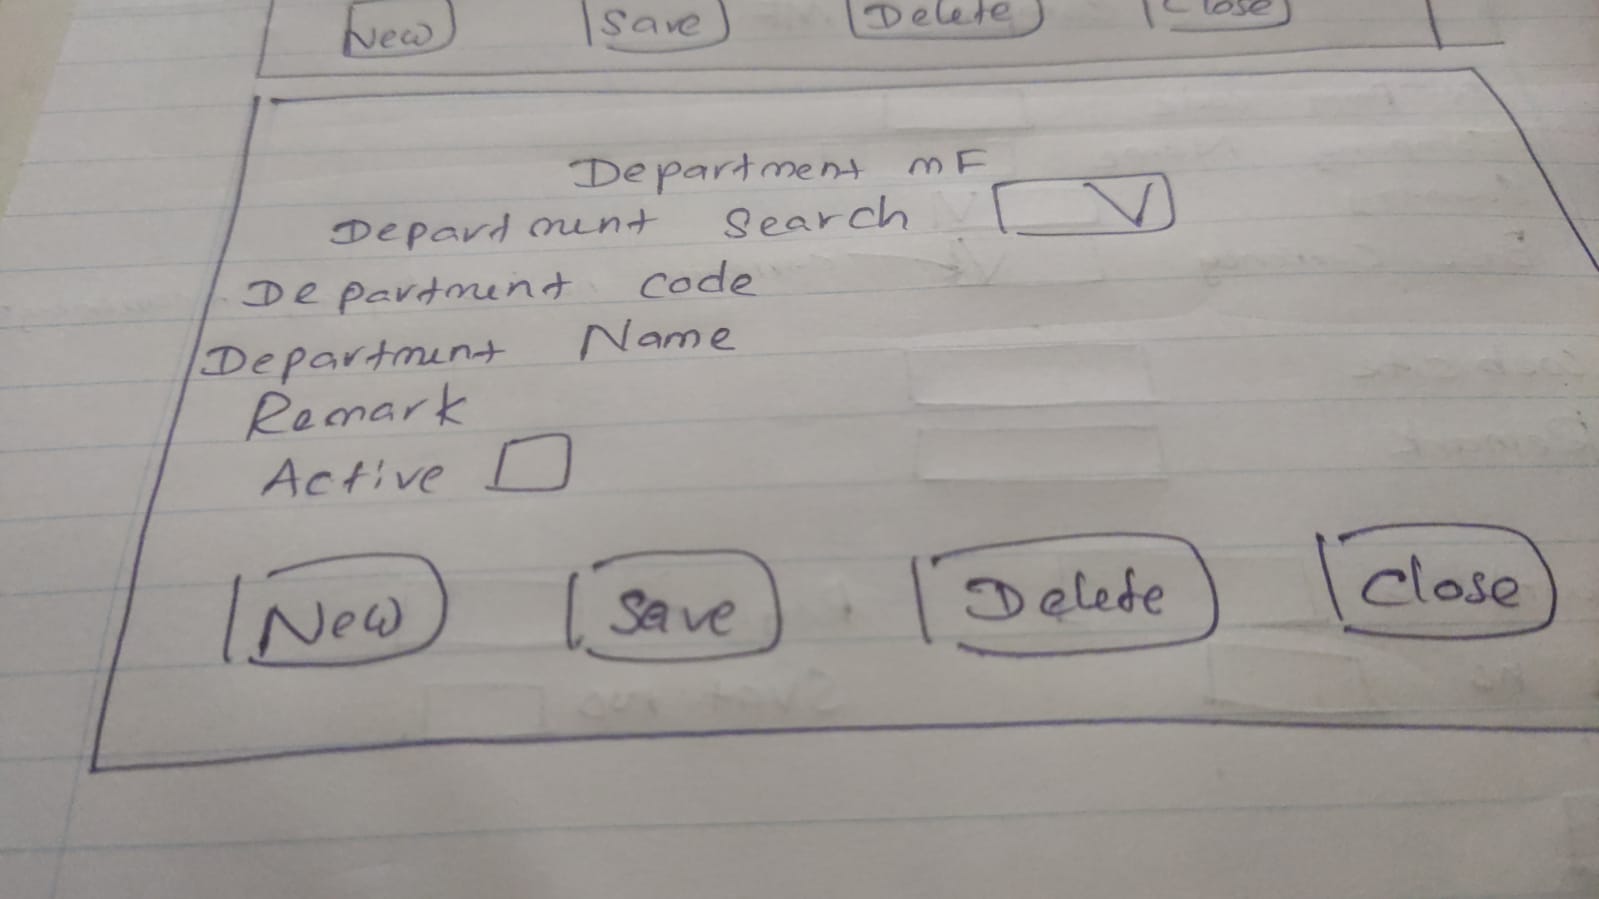 New Save Delete Close
Department mF
Department Search
Department code
Department Name
Remark
Active
New Save Delete Close